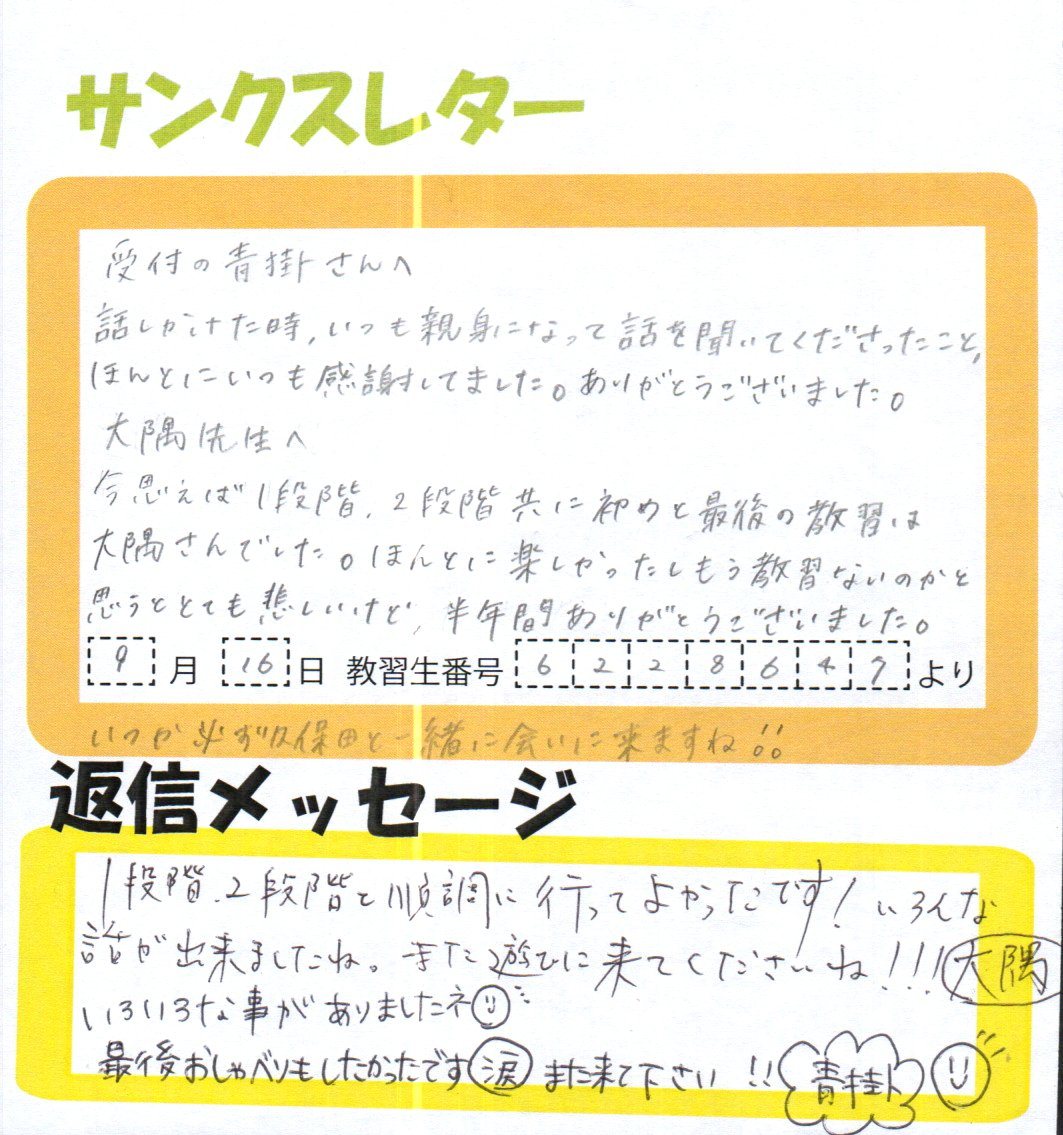 サンクスレター
受付の青掛さんへ
話しかけた時,いつも親身になって話を聞いてくださったこと,
ほんとにいつも感謝してました。ありがとうございました。
大隅先生へ
今思えば1段階,2段階共に初めと最後の教習は
大隅さんでした。ほんとに楽しかったしもう教習ないのかと
思うととても悲しいけど,半年間ありがとうございました。
9月16日 教習生番号 6228647より
いつか必ず久保田と一緒に会いに来ますね!!
返信メッセージ
1段階、2段階と順調に行ってよかったです!いろんな
話が出来ましたね。また遊びに来てくださいね!!!大隅
いろいろな事がありましたネ
最後おしゃべりもしたかったです涙 また来て下さい!!青掛